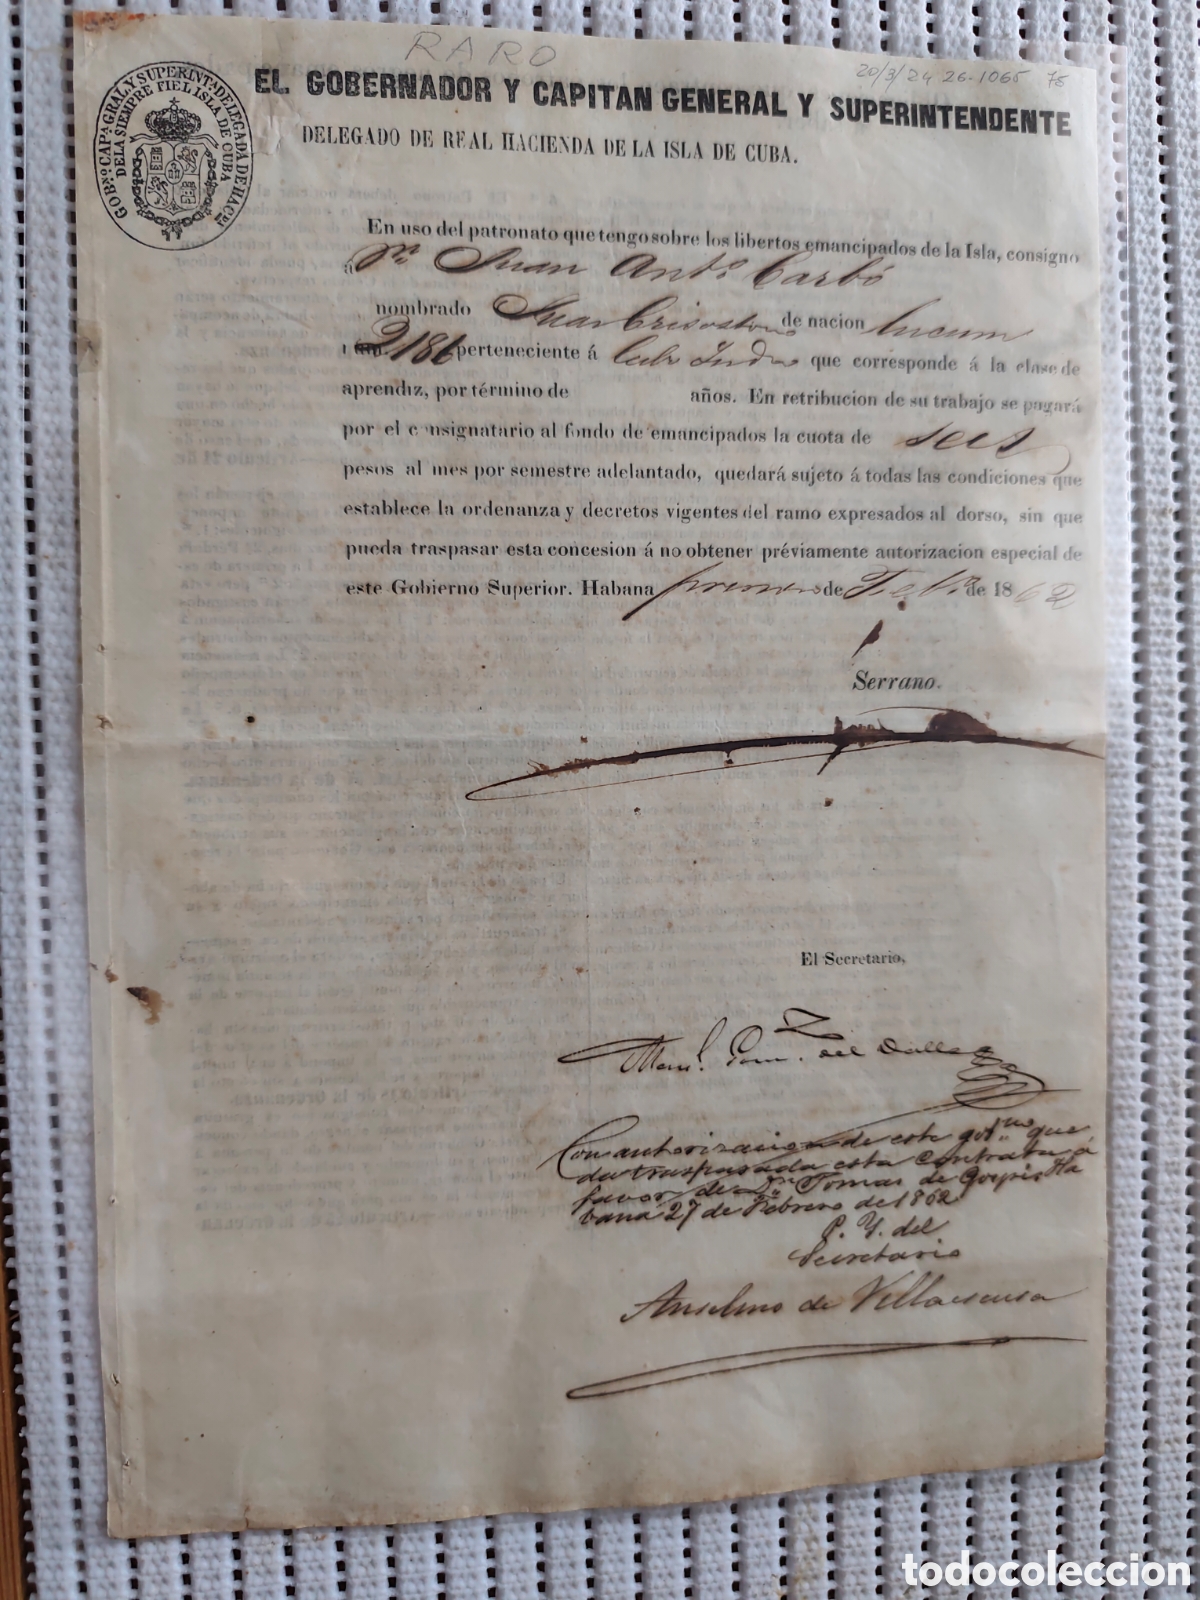 RARO
20/3/24 26-1065 75
GOBNO CAPA GRAL Y SUPERINTA DELEGADA DE HACDA
DE LA SIEMPRE FIEL ISLA DE CUBA
EL GOBERNADOR Y CAPITAN GENERAL Y SUPERINTENDENTE
DELEGADO DE REAL HACIENDA DE LA ISLA DE CUBA.
En uso del patronato que tengo sobre los libertos emancipados de la Isla, consigno
á Dn. Juan Anto. Carbó
nombrado Juan Crisostomo de nacion Lucumi
2186 perteneciente á que corresponde á la clase de
aprendiz, por término de años. En retribucion de su trabajo se pagará
por el consignatario al fondo de emancipados la cuota de seis
pesos al mes por semestre adelantado, quedará sujeto á todas las condiciones que
establece la ordenanza y decretos vigentes del ramo expresados al dorso, sin que
pueda traspasar esta concesion á no obtener préviamente autorizacion especial de
este Gobierno Superior. Habana primero de Febo. de 1862
Serrano.
El Secretario,
del Valle
Con autorizacion de este gobno. que
da traspasada esta contrata á
favor de Dn. Tomas de Ha
bana 27 de Febrero de 1862
P. Y. del
Secretario
Anselmo de Villaescusa
todocoleccion